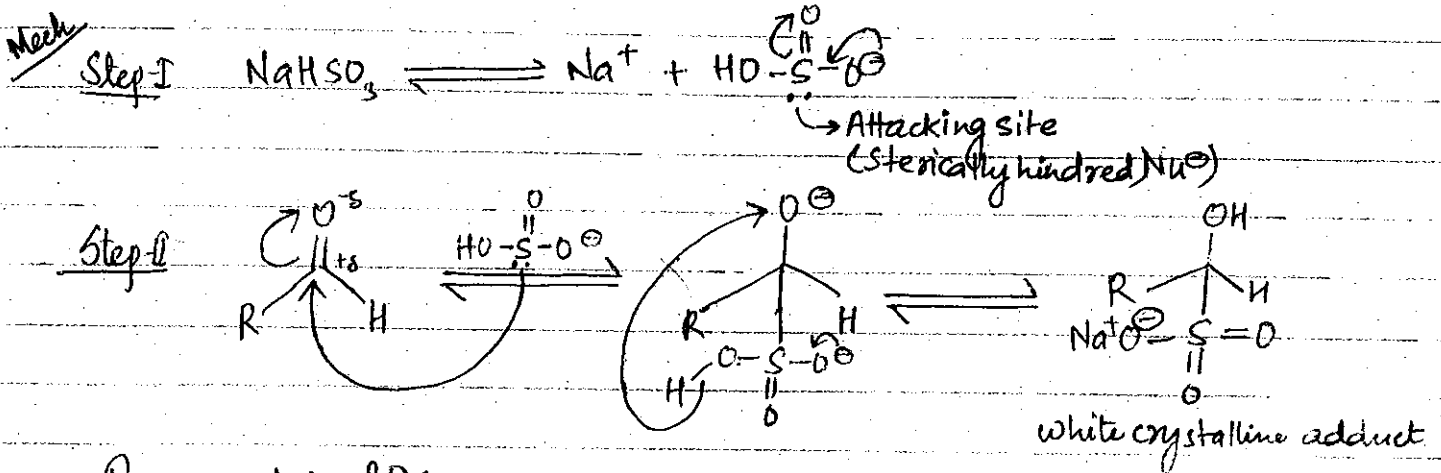 Mech
Step-I NaHSO₃ ⇌ Na⁺ + HO-S-O⊖
O
→ Attacking site
(Sterically hindred, Nu⊖)
Step-II
O-δ
+δ
R H
O
HO-S-O⊖
O⊖
R H
O-S-O⊖
H O
OH
R H
Na⁺O⊖-S=O
O
white crystalline adduct